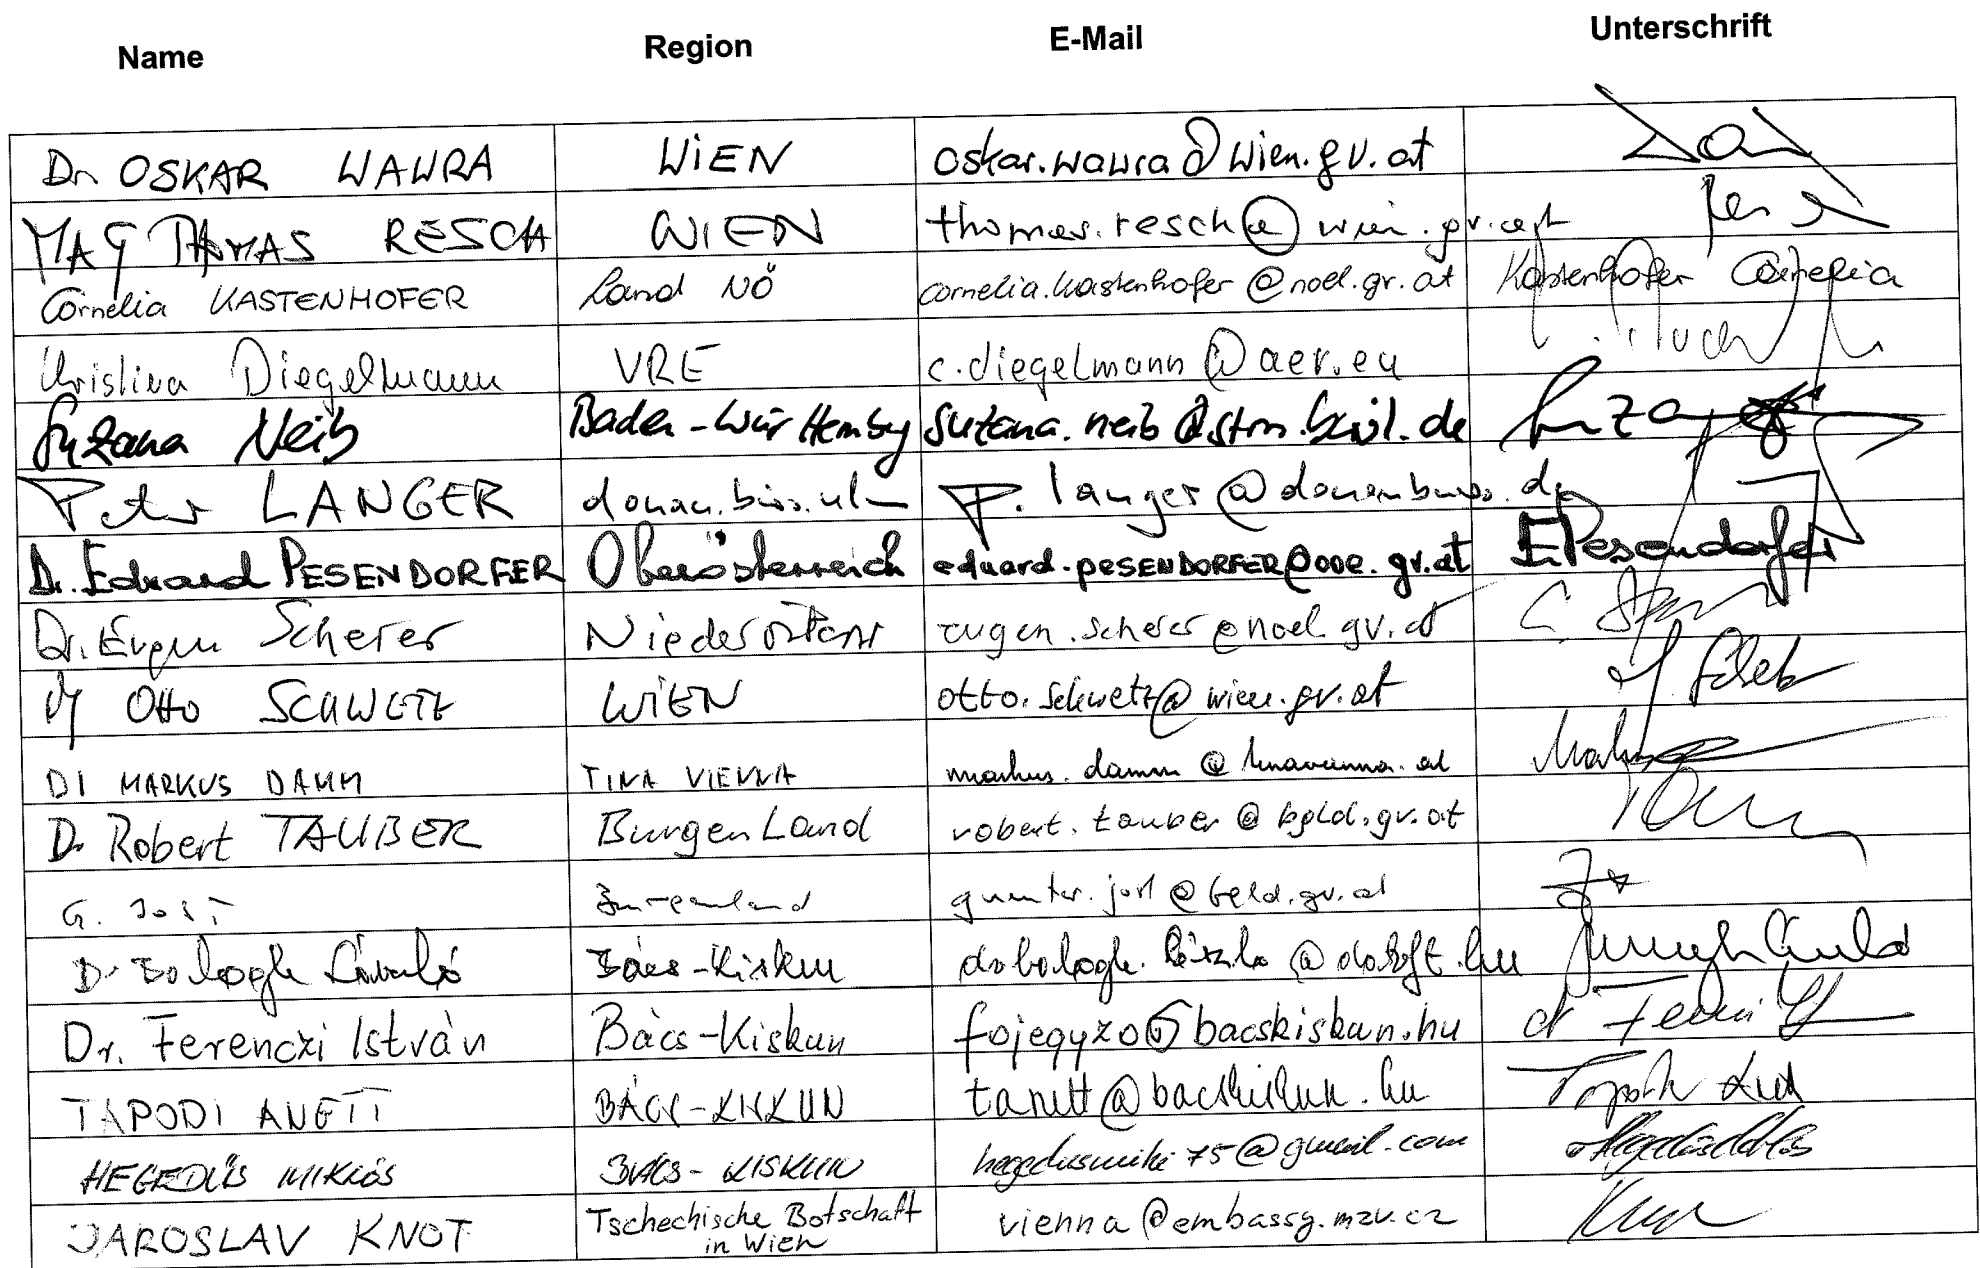 Name Region E-Mail Unterschrift
Dr. OSKAR WAWRA WIEN oskar.wawra@wien.gv.at
MAG THOMAS RESCH WIEN thomas.resch@wien.gv.at
Cornelia KASTENHOFER Land NÖ cornelia.kastenhofer@noel.gv.at Kastenhofer Cornelia
Christina Diegelmann VRE c.diegelmann@aer.eu
Suzana Neib Baden-Württemberg suzana.neib@stm.bwl.de
Peter LANGER donau.büro.ulm p.langer@donaubuero.de
Dr. Eduard PESENDORFER Oberösterreich eduard.PESENDORFER@ooe.gv.at EPesendorfer
Dr. Eugen Scherer eugen.scherer@noel.gv.at
OTTO SCHWETZ WIEN otto.schwetz@wien.gv.at
DI MARKUS DAMM TINA VIENNA markus.damm@tinavienna.at
Dr Robert TAUBER BurgenLand robert.tauber@bgld.gv.at
G. JOST Burgenland gunter.jost@bgld.gv.at
Dr Balogh László Bács-Kiskun
Dr. Ferenczi István Bács-Kiskun fojegyzo@bacskiskun.hu
TAPODI ANETT BÁCS-KISKUN tanett@bacskiskun.hu
HEGEDŰS MIKLÓS BÁCS-KISKUN hegedusmiki75@gmail.com
JAROSLAV KNOT Tschechische Botschaft vienna@embassy.mzv.cz
in Wien